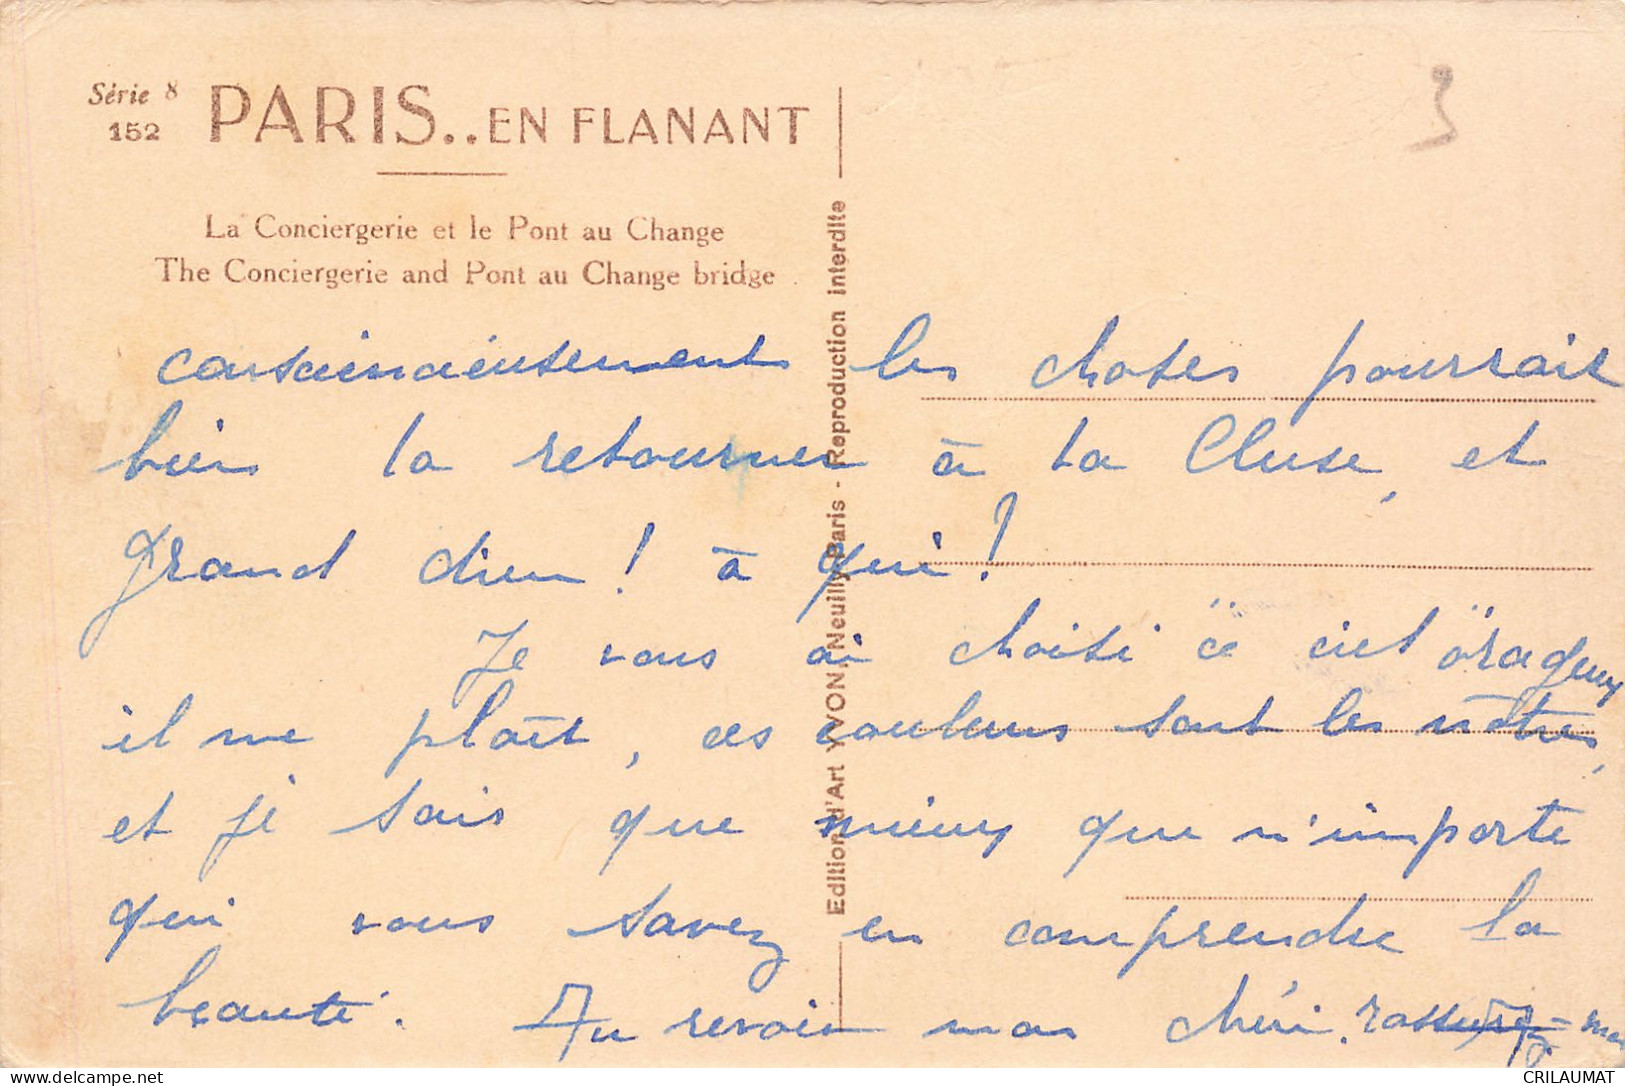 Série 8
152
PARIS.. EN FLANANT
La Conciergerie et le Pont au Change
The Conciergerie and Pont au Change bridge
Edition d'Art YVON, Neuilly-Paris - Reproduction interdite
3
consciencieusement les choses pourrait
bien la retourner à La Cluse, et
grand dieu ! à qui !
Je vous ai choisi ce ciel orageux
il me plaît, ces couleurs sont les nôtres,
et je sais que mieux que n'importe
qui vous savez en comprendre la
beauté. Au revoir mon chéri. rassurez-moi
delcampe.net
CRILAUMAT